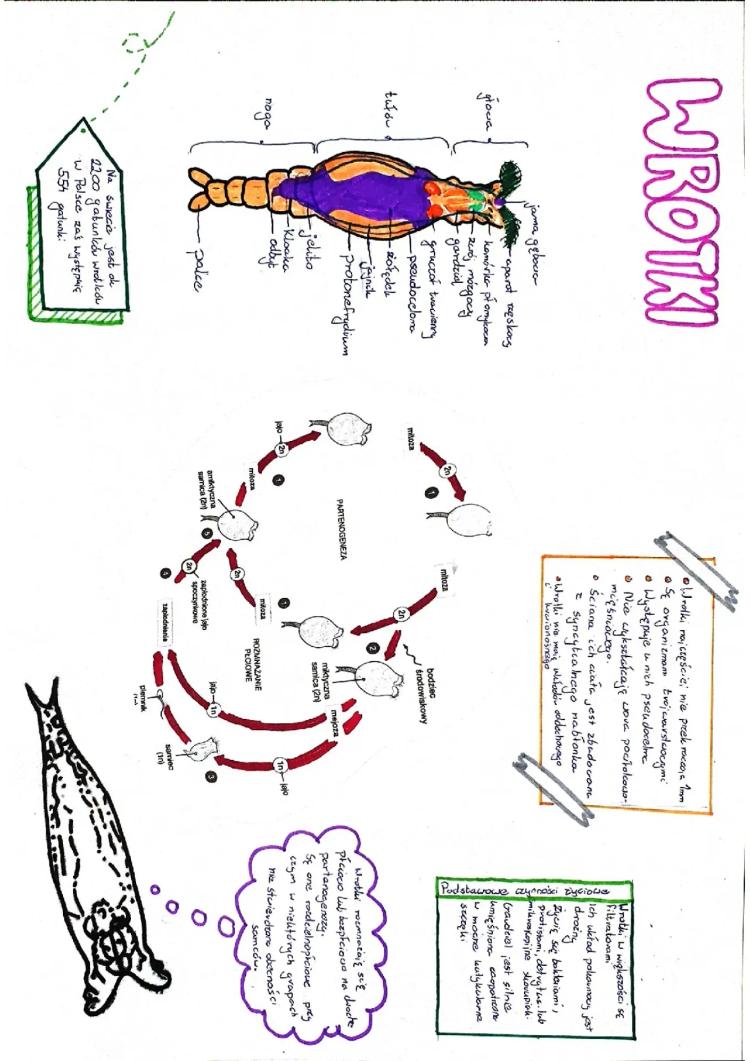 WROTKI
głowa
tułów
noga
jama gębowa
aparat rzęskowy
komórka płomykowa
zwój mózgowy
gardziel
gruczoł trawienny
pseudocelona
żołądek
jajnik
protonefrydium
jelito
kloaka
odbyt
palce
Na świecie jest ok
2200 gatunków wrotków
w Polsce zaś występuje
554 gatunki
• Wrotki najczęściej nie przekraczają 1mm
• Są organizmami trójwarstwowymi
• Występuje u nich pseudocelma
• Nie wykształcają wora powłokowo-
mięśniowego.
• Ściana ich ciała jest zbudowana
z syncytialnego nabłonka
• Wrotki nie mają układów oddechowego
i krwionośnego
mitoza
2n
1
mitoza
2n
2
bodziec
środowiskowy
miktyczna
samica (2n)
mejoza
1n
jajo
3
samiec
(1n)
plemnik
jajo
1n
zapłodnienie
4
2n
zapłodnione jajo
spoczynkowe
5
amiktyczna
samica (2n)
mitoza
1
jajo
2n
PARTENOGENEZA
mitoza
1
2n
ROZMNAŻANIE
PŁCIOWE
Podstawowe czynności życiowe
Wrotki w większości są
filtratorami
Ich układ pokarmowy jest
drożny
Żywią się bakteriami,
protistami, detrytus lub
mikroskopijne skorupiaki.
Gardziel jest silnie
umięśniona zaopatrzona
w mocne kutykularne
szczęki.
Wrotki rozmnażają się
płciowo lub bezpłciowo na drodze
partenogenezy.
Są one rozdzielnopłciowe przy
czym w niektórych grupach
nie stwierdzono obecności
samców.